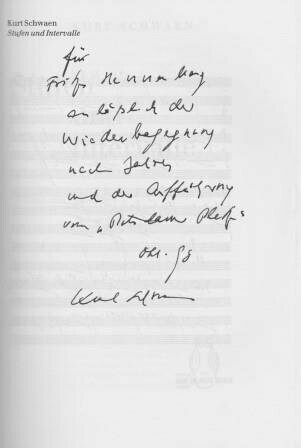 Kurt Schwaen
Stufen und Intervalle
für
Fritz Hennenberg
anläßlich der
Wiederbegegnung
nach Jahren
und der Aufführung
vom „Potsdamer Platz“
Okt. 98
Kurt Schwaen